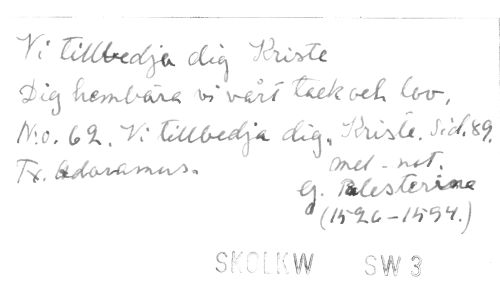 Vi tillbedja dig Kriste
Dig hembära vi vårt tack och lov,
N:o. 62. Vi tillbedja dig, Kriste. Sid. 89.
Tx. Adoramus. mel-not.
G. Palesterina
(1526-1594.)
SKOLKW SW 3